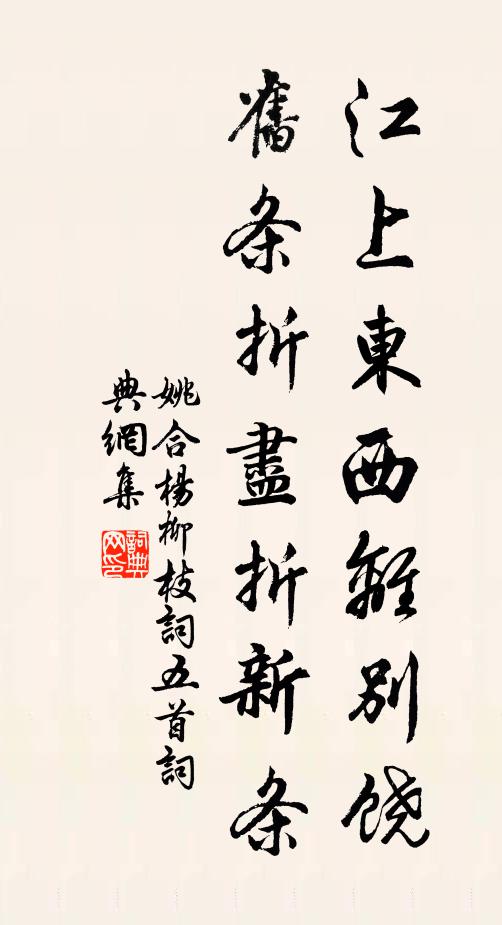 江上東西離別饶
舊条折盡折新条
姚合楊柳枝詞五首詞
典網集
詞典网印